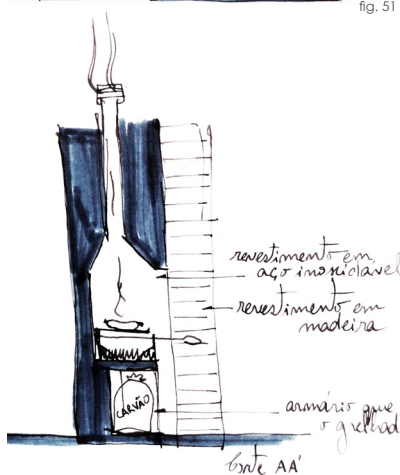 fig. 51
revestimento em
aço inoxidável
revestimento em
madeira
armário que
o grelhad
CARVÃO
Corte AA'